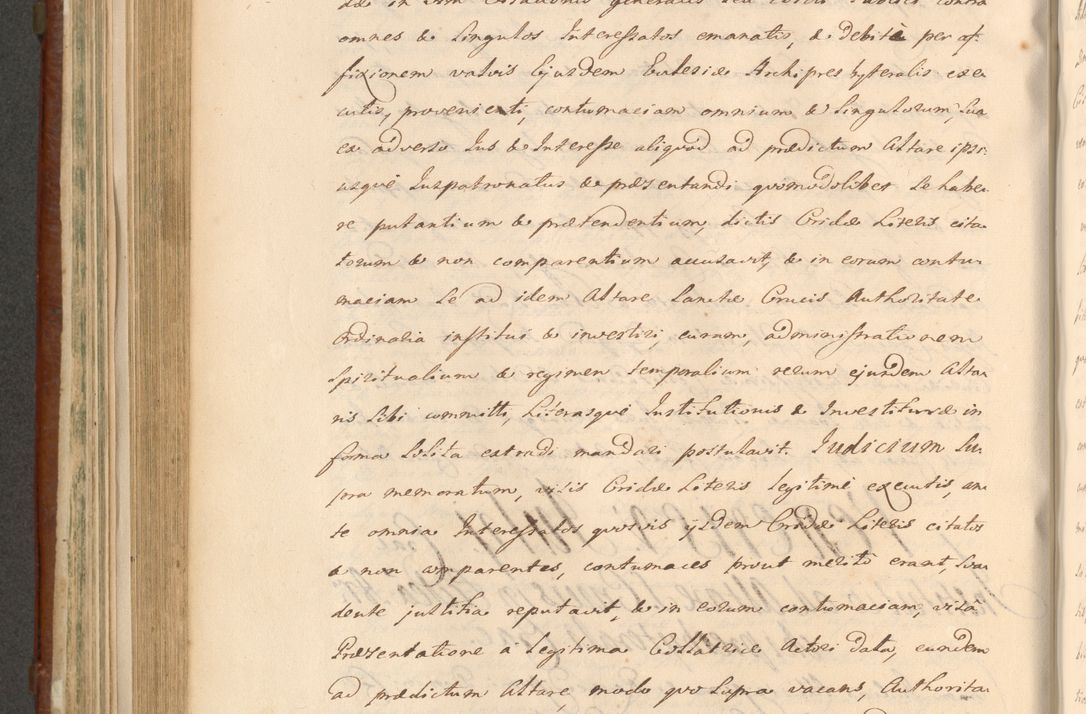 dæ in vim Citationis generalis seu Edicti Publici contra
omnes & Singulos Interessatos emanatis, & debitè per af-
fixionem valvis Ejusdem Ecclesiæ Archipresbyteralis exe-
cutis, provenienti, contumaciam omnium & Singulorum, Sua
ex adverso Jus & Interesse aliquod ad prædictum Altare ipsi-
usque Juspatronatus & præsentandi quomodolibet Se habe-
re putantium & prætendentium, dictis Cridæ Literis cita-
torum & non comparentium accusavit, & in eorum contu-
maciam Se ad idem Altare Sanctæ Crucis Authoritate
Ordinaria institui & investiri, curam, administrationem
Spiritualium & regimen temporalium rerum ejusdem Alta-
ris Sibi committi, Literasque Institutionis & Investituræ in
forma Solita extradi mandari postulavit. Judicium Su-
pra memoratum, visis Cridæ Literis legitimè executis, an-
te omnia Interessatos quosvis ijsdem Cridæ Literis citatos
& non comparentes, contumaces prout meritò erant, Sua-
dente justitia reputavit, & in eorum contumaciam, visâ
Præsentatione a Legitima Collatrice Actori data, eundem
ad prædictum Altare, modo quo Supra vacans, Authorita-